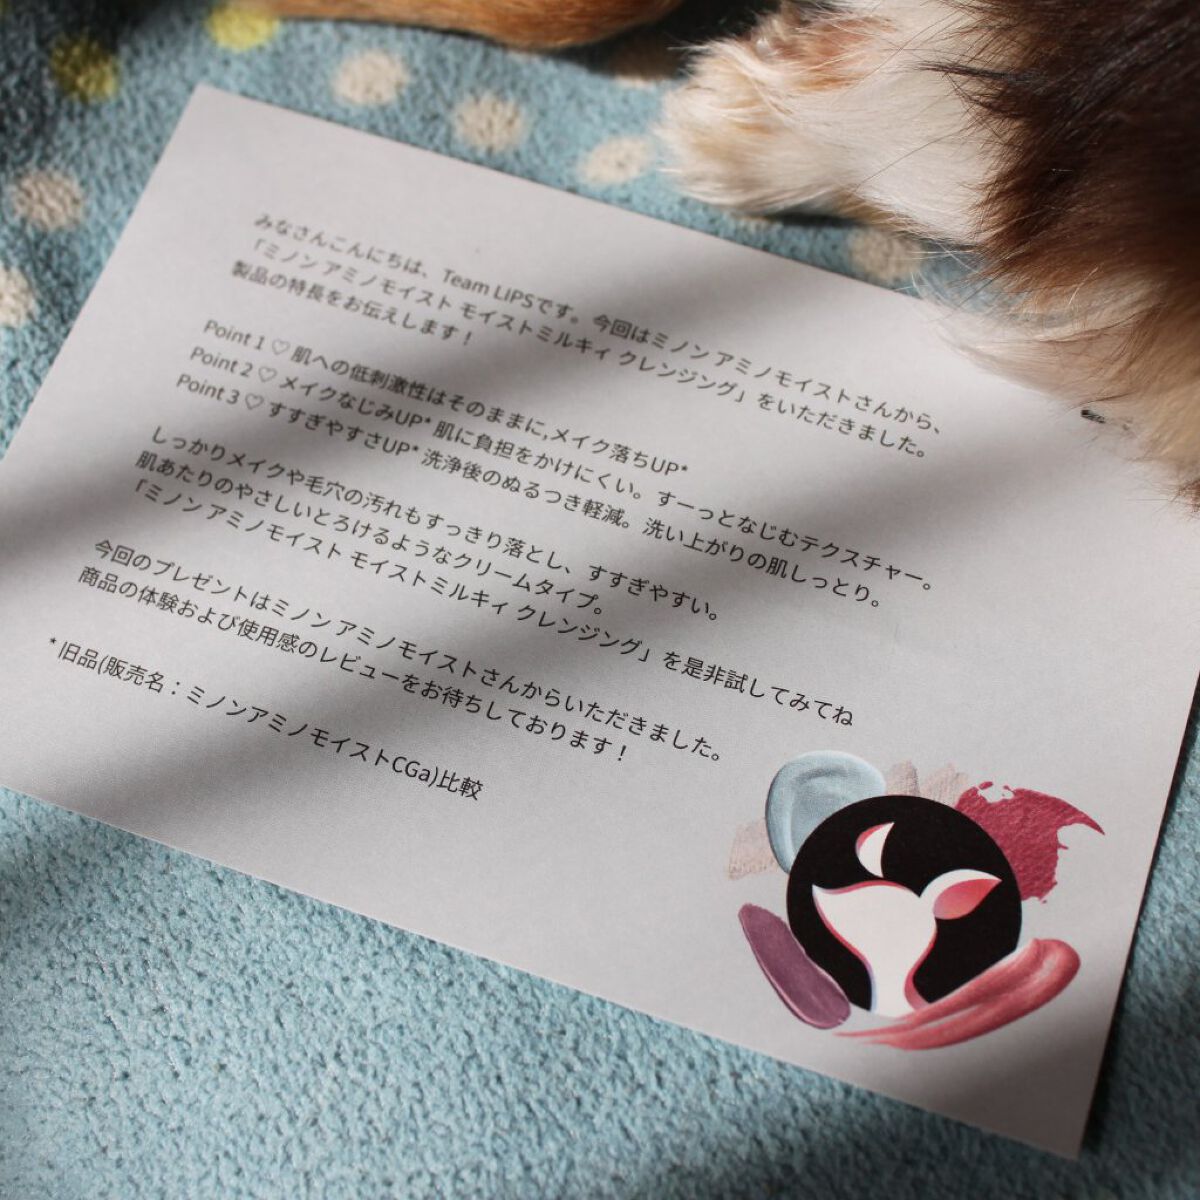 みなさんこんにちは、Team LIPSです。今回はミノン アミノモイストさんから、
「ミノン アミノモイスト モイストミルキィ クレンジング」をいただきました。
製品の特長をお伝えします！
Point 1 ♡ 肌への低刺激性はそのままに,メイク落ちUP*
Point 2 ♡ メイクなじみUP* 肌に負担をかけにくい。すーっとなじむテクスチャー。
Point 3 ♡ すすぎやすさUP* 洗浄後のぬるつき軽減。洗い上がりの肌しっとり。
しっかりメイクや毛穴の汚れもすっきり落とし、すすぎやすい。
肌あたりのやさしいとろけるようなクリームタイプ。
「ミノン アミノモイスト モイストミルキィ クレンジング」を是非試してみてね
今回のプレゼントはミノン アミノモイストさんからいただきました。
商品の体験および使用感のレビューをお待ちしております！
* 旧品(販売名：ミノンアミノモイストCGa)比較